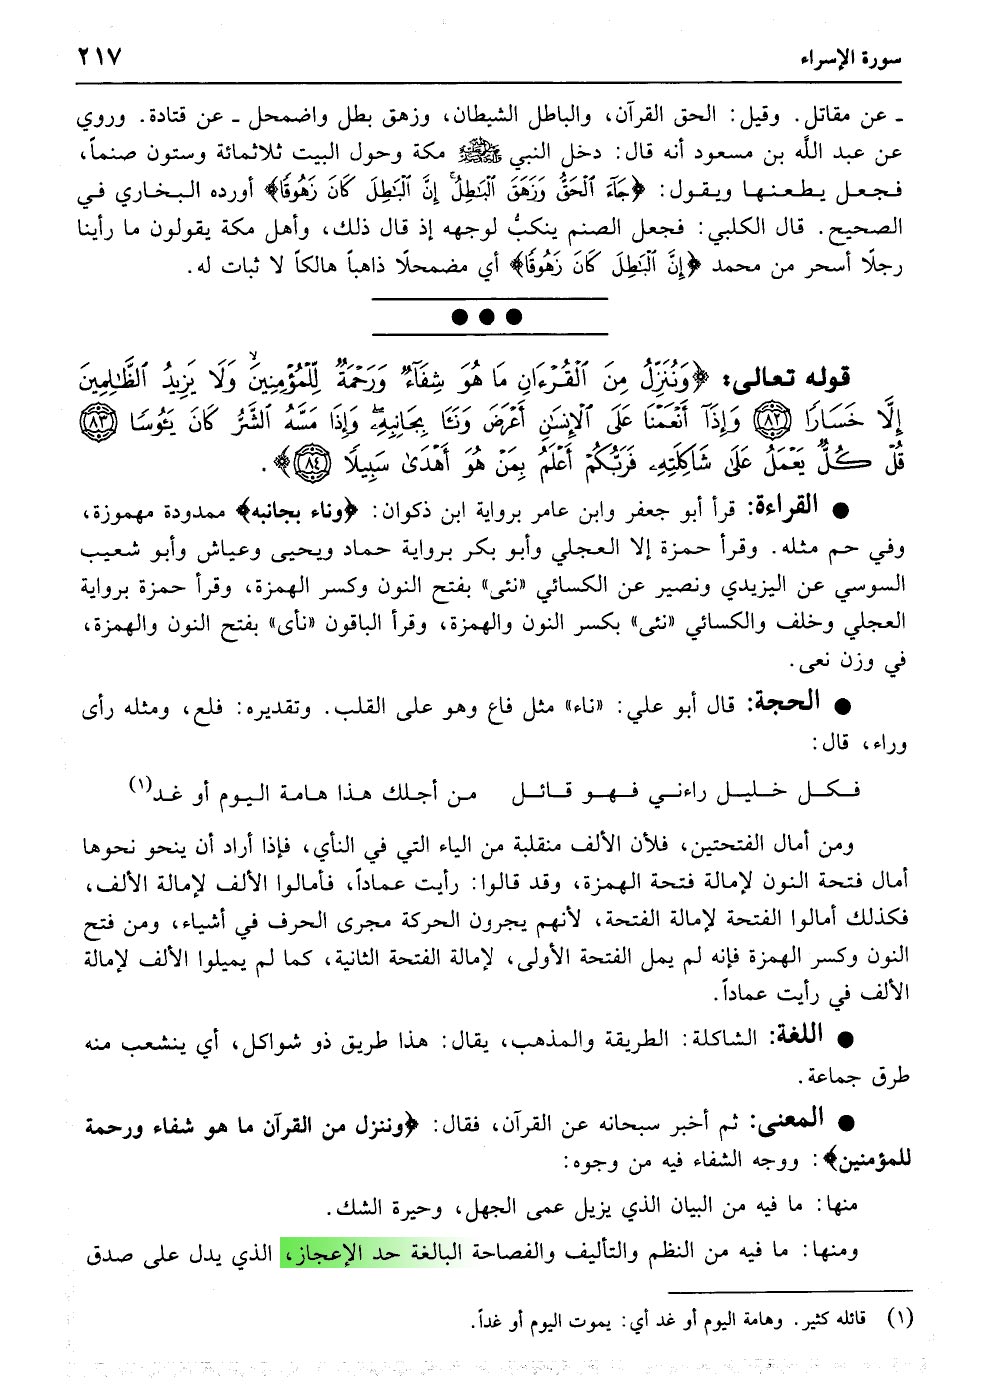 سورة الإسراء ٢١٧
ـ عن مقاتل. وقيل: الحق القرآن، والباطل الشيطان، وزهق بطل واضمحل ـ عن قتادة. وروي
عن عبد الله بن مسعود أنه قال: دخل النبي ﷺ مكة وحول البيت ثلاثمائة وستون صنماً،
فجعل يطعنها ويقول: ﴿جَآءَ ٱلْحَقُّ وَزَهَقَ ٱلْبَٰطِلُ ۚ إِنَّ ٱلْبَٰطِلَ كَانَ زَهُوقًا﴾ أورده البخاري في
الصحيح. قال الكلبي: فجعل الصنم ينكبُّ لوجهه إذ قال ذلك، وأهل مكة يقولون ما رأينا
رجلًا أسحر من محمد ﴿إِنَّ ٱلْبَٰطِلَ كَانَ زَهُوقًا﴾ أي مضمحلًا ذاهباً هالكاً لا ثبات له.
● ● ●
قوله تعالى: ﴿وَنُنَزِّلُ مِنَ ٱلْقُرْءَانِ مَا هُوَ شِفَآءٌ وَرَحْمَةٌ لِّلْمُؤْمِنِينَ ۙ وَلَا يَزِيدُ ٱلظَّٰلِمِينَ
إِلَّا خَسَارًا ٨٢ وَإِذَآ أَنْعَمْنَا عَلَى ٱلْإِنسَٰنِ أَعْرَضَ وَنَـَٔا بِجَانِبِهِۦ ۖ وَإِذَا مَسَّهُ ٱلشَّرُّ كَانَ يَـُٔوسًا ٨٣
قُلْ كُلٌّ يَعْمَلُ عَلَىٰ شَاكِلَتِهِۦ فَرَبُّكُمْ أَعْلَمُ بِمَنْ هُوَ أَهْدَىٰ سَبِيلًا ٨٤﴾.
● القراءة: قرأ أبو جعفر وابن عامر برواية ابن ذكوان: ﴿وناء بجانبه﴾ ممدودة مهموزة،
وفي حم مثله. وقرأ حمزة إلا العجلي وأبو بكر برواية حماد ويحيى وعياش وأبو شعيب
السوسي عن اليزيدي ونصير عن الكسائي «نئى» بفتح النون وكسر الهمزة، وقرأ حمزة برواية
العجلي وخلف والكسائي «نئى» بكسر النون والهمزة، وقرأ الباقون «نأى» بفتح النون والهمزة،
في وزن نعى.
● الحجة: قال أبو علي: «ناء» مثل فاع وهو على القلب. وتقديره: فلع، ومثله رأى
وراء، قال:
فكل خليل راءني فهو قائل من أجلك هذا هامة اليوم أو غد(١)
ومن أمال الفتحتين، فلأن الألف منقلبة من الياء التي في النأي، فإذا أراد أن ينحو نحوها
أمال فتحة النون لإمالة فتحة الهمزة، وقد قالوا: رأيت عماداً، فأمالوا الألف لإمالة الألف،
فكذلك أمالوا الفتحة لإمالة الفتحة، لأنهم يجرون الحركة مجرى الحرف في أشياء، ومن فتح
النون وكسر الهمزة فإنه لم يمل الفتحة الأولى، لإمالة الفتحة الثانية، كما لم يميلوا الألف لإمالة
الألف في رأيت عماداً.
● اللغة: الشاكلة: الطريقة والمذهب، يقال: هذا طريق ذو شواكل، أي ينشعب منه
طرق جماعة.
● المعنى: ثم أخبر سبحانه عن القرآن، فقال: ﴿وننزل من القرآن ما هو شفاء ورحمة
للمؤمنين﴾: ووجه الشفاء فيه من وجوه:
منها: ما فيه من البيان الذي يزيل عمى الجهل، وحيرة الشك.
ومنها: ما فيه من النظم والتأليف والفصاحة البالغة حد الإعجاز، الذي يدل على صدق
(١) قائله كثير. وهامة اليوم أو غد أي: يموت اليوم أو غداً.